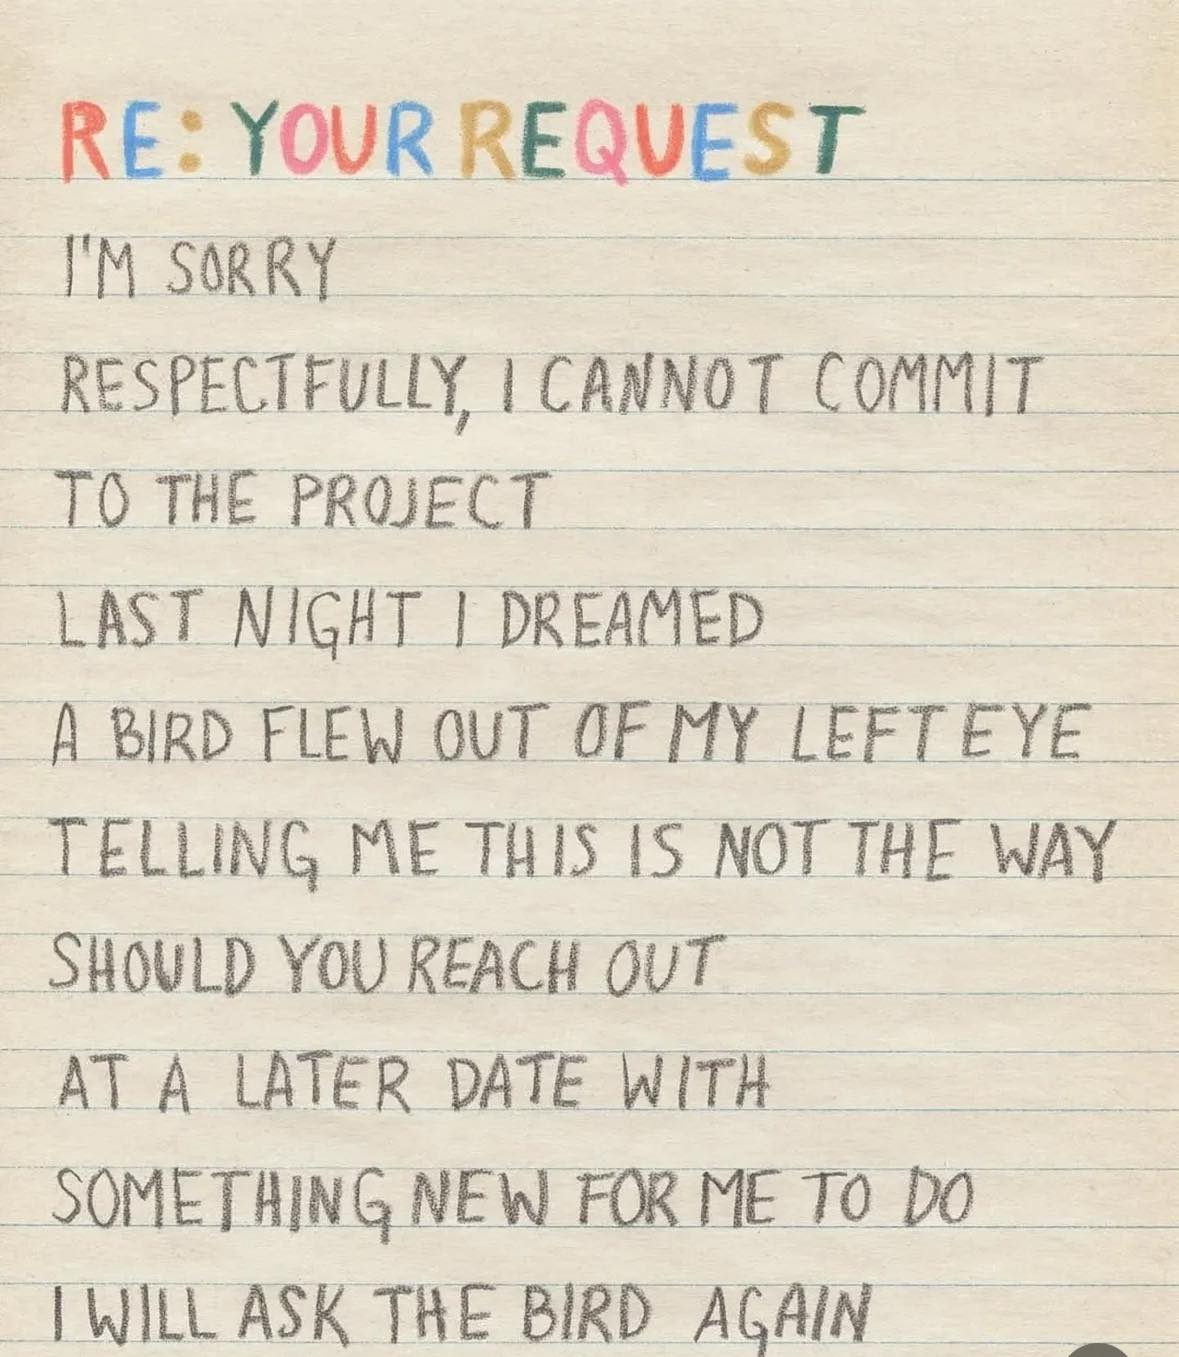 RE: YOUR REQUEST
I'M SORRY
RESPECTFULLY, I CANNOT COMMIT
TO THE PROJECT
LAST NIGHT I DREAMED
A BIRD FLEW OUT OF MY LEFT EYE
TELLING ME THIS IS NOT THE WAY
SHOULD YOU REACH OUT
AT A LATER DATE WITH
SOMETHING NEW FOR ME TO DO
I WILL ASK THE BIRD AGAIN